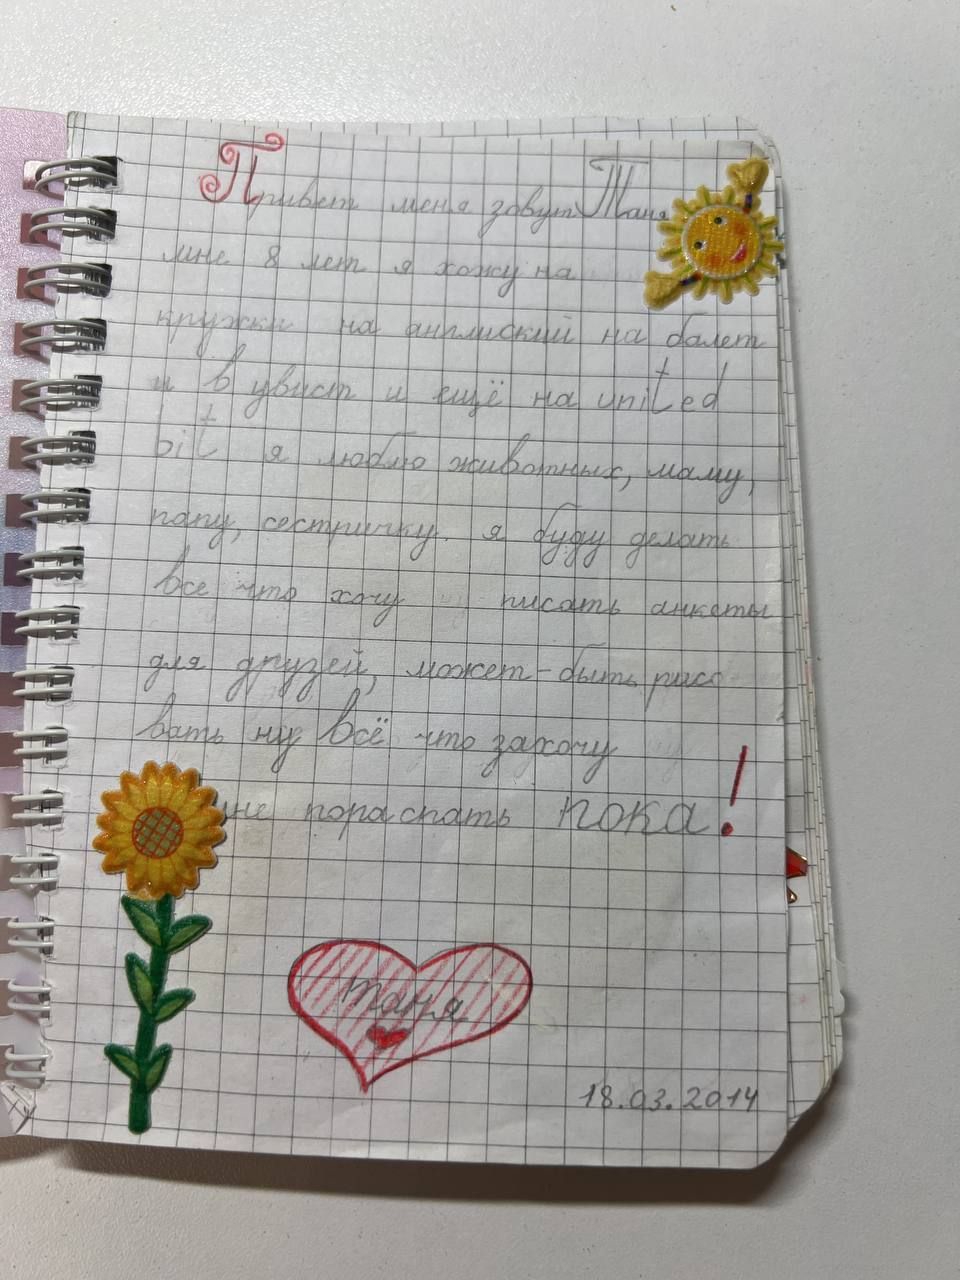 Привет меня зовут Таня
мне 8 лет я хожу на
кружки на англиский на балет
и в увист и ещё на united
bit я люблю животных, маму,
папу, сестричку. я буду делать
все что хочу писать анкеты
для друзей, может-быть рисо
вать ну всё что захочу
мне пора спать пока!
Таня
18.03.2014